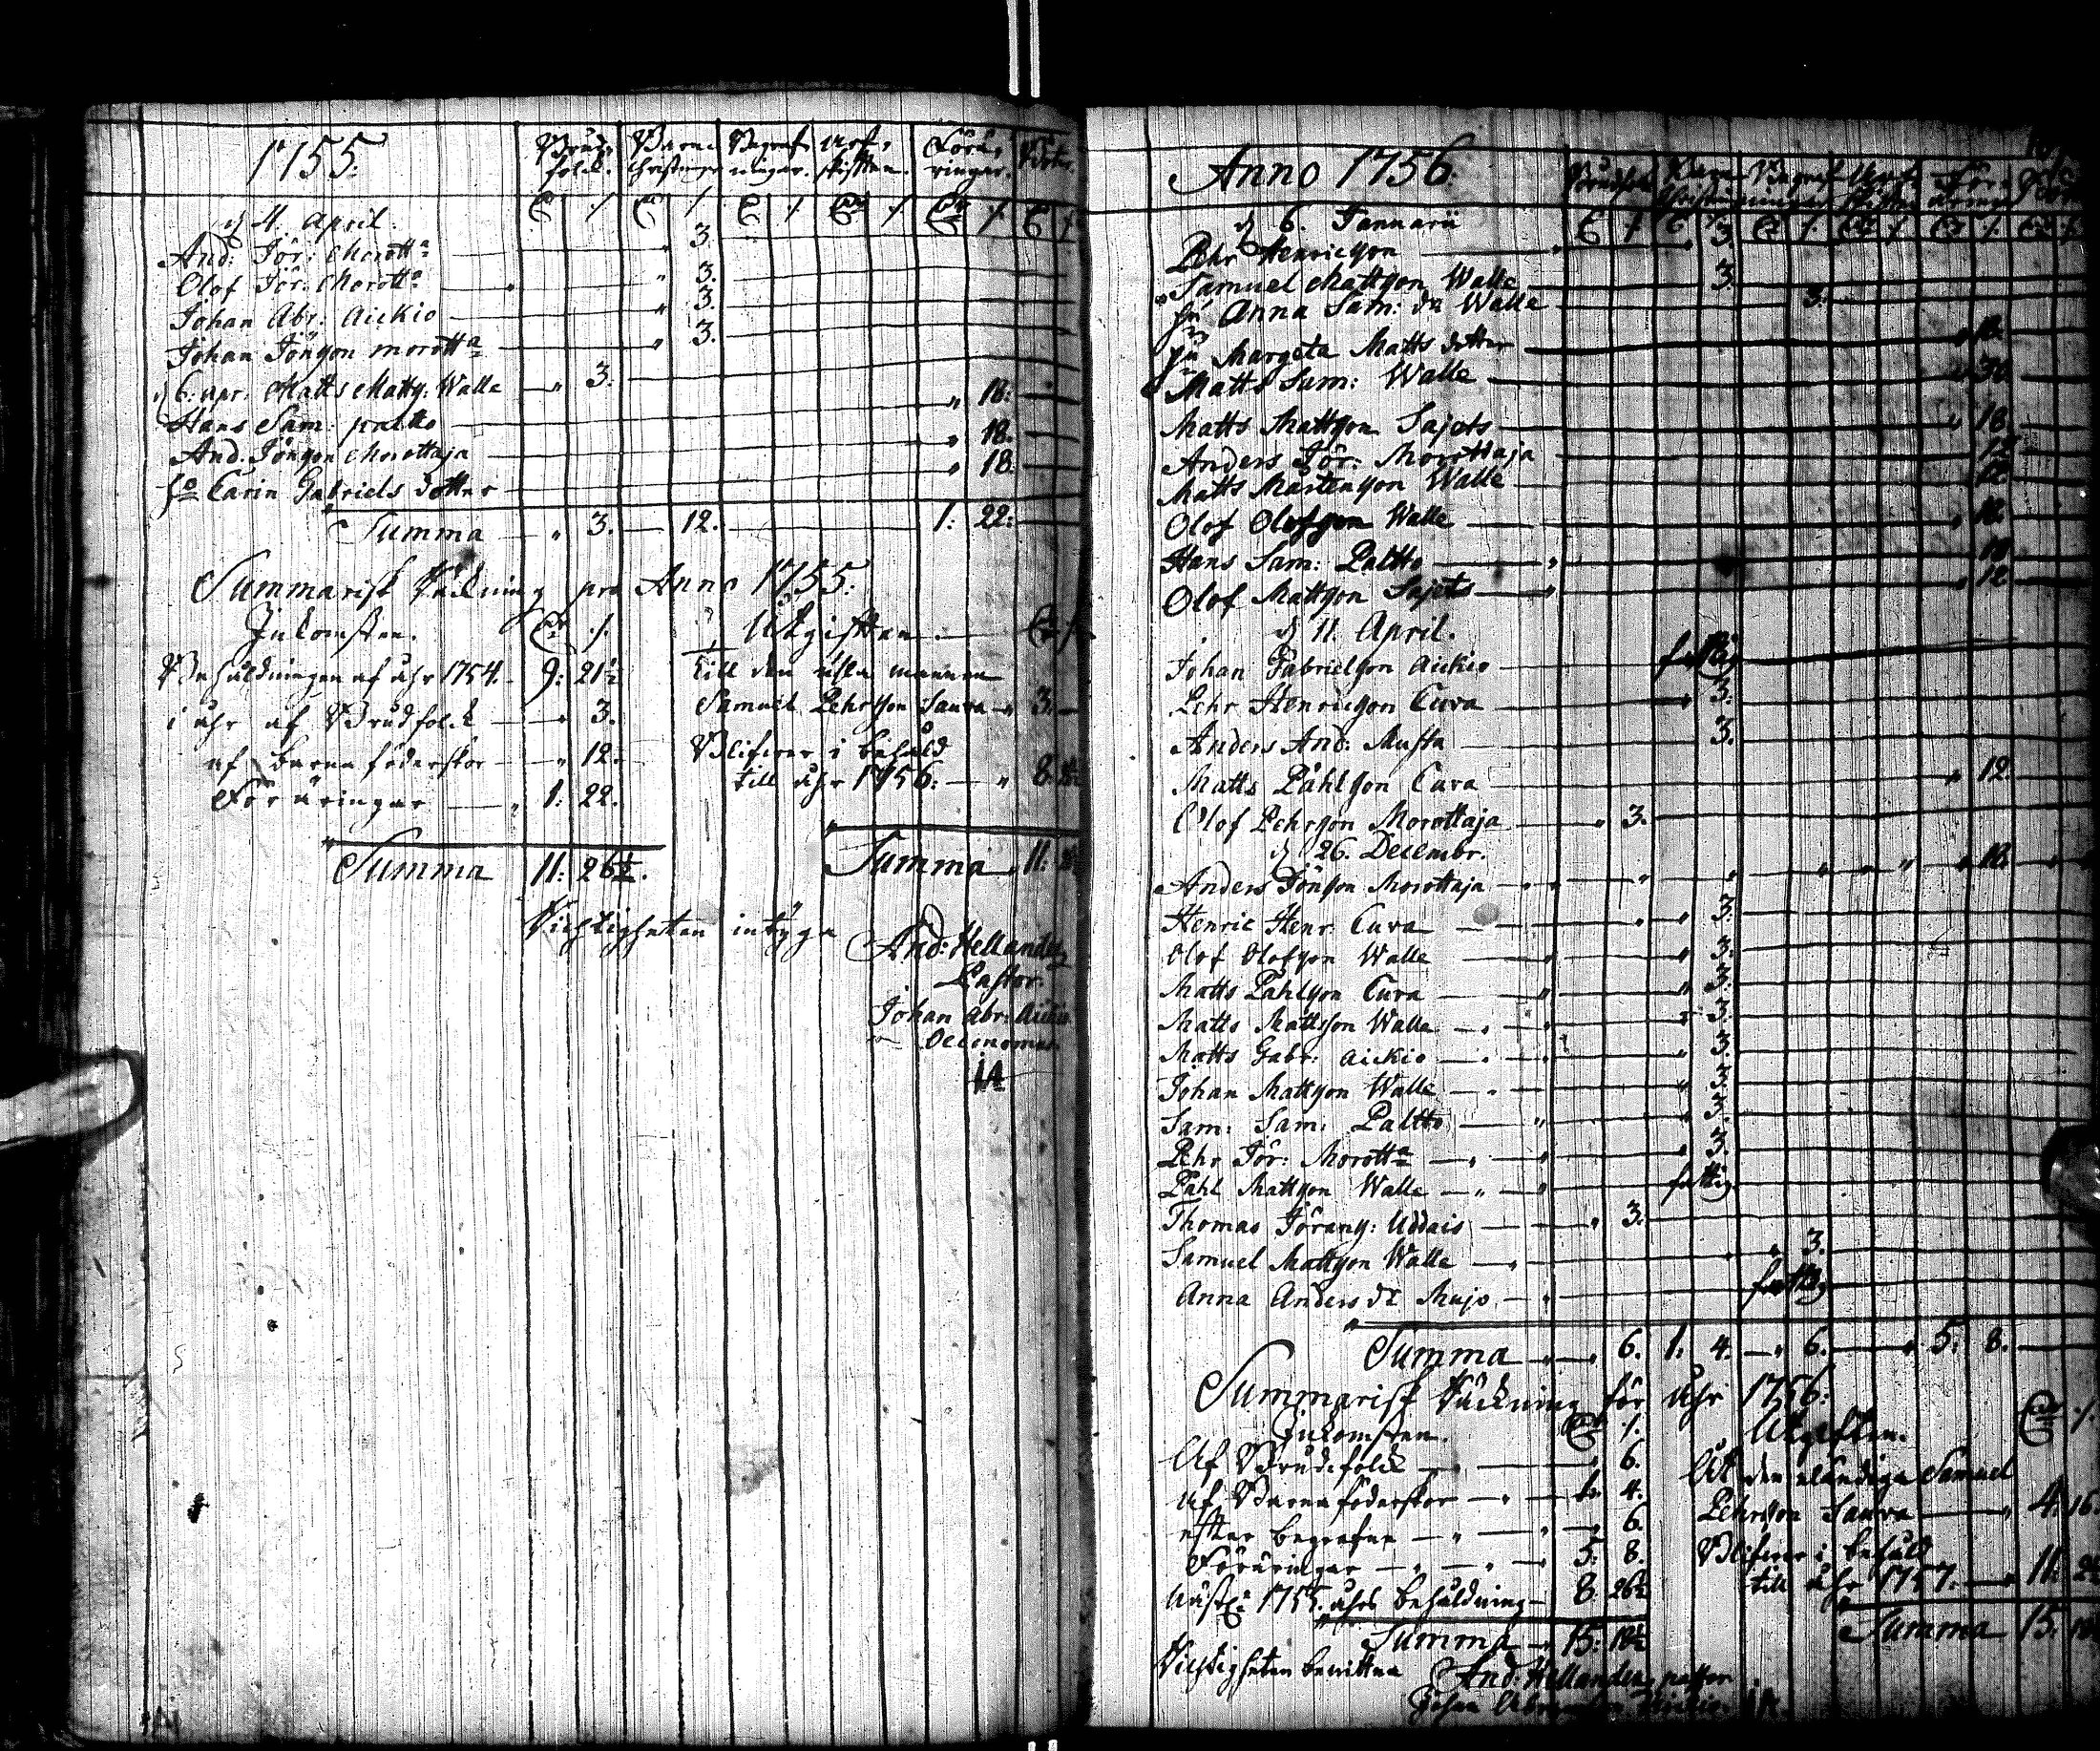 1755.
Brud-
folck.
Barne
Christningar
Begraf-
ningar.
Förä-
ringar.
d 4. April.
And: Jör: Morotta 3.
Olof Jör: Morotta 3.
Johan Abr: Aickio 3.
Johan Jönson morotta 3.
d 6. apr. Matts Mattss: Walle 3.
Hans Sam: paltto 18.
And. Jönson Morottaja 18.
Carin Gabriels dotter 18.
Summa 3. 12. 1: 22:
Summarisk Räckning pro Anno 1755:
Inkomsten.
Behåldningen af åhr 1754. 9: 21½
i åhr af Brudfolck 3.
af barna föderskor 12.
Föräringar 1: 22.
Summa 11: 26½.
Utgifften
till den usla mannen
Samuel Pehrsson Saura 3.
Blifwer i behåld
till åhr 1756: 8.
Summa 11:
Richtigheten intyga
And: Hellander
Pastor.
Johan Abr: Aickio
Oeconomus.
Anno 1756.
Brudfolck
Barne
Christningar
Begraf
ningar
d 6. Januarii
Pehr Henricsson 3.
Samuel Mattsson Walle 3.
hu Anna Sam: dr Walle 3.
hu Margeta Matts dotter 18.
Matts Sam: Walle
Matts Mattsson Sajets 18.
Anders Jör: Morottaja 12
Matts Mårtensson Walle 12.
Olof Olofsson Walle
Hans Sam: Paltto
Olof Mattsson Sajets 12
d 11. April.
Johan Gabrielsson Aickio fattig
Pehr Henricsson Cuva 3.
Anders And: Musta 3.
Matts Påhlsson Cuva 12.
Olof Pehrsson Morottaja 3.
d 26. Decembr.
Anders Jönsson Morottaja 18.
Henric Henr. Cuva 3.
Olof Olofsson Walle 3.
Matts Påhlsson Cuva 3.
Matts Mattsson Walle 3.
Matts Gabr: Aickio 3.
Johan Mattsson Walle 3.
Sam: Sam: Paltto 3.
Pehr Jör: Morotta 3.
Påhl Mattsson Walle fattig
Thomas Jörans: Uddais 3.
Samuel Mattsson Walle 3.
Anna Anders dr Mujo fattig
Summa 6. 1: 4. 6. 5: 8.
Summarisk Räckning för åhr 1756:
Inkomsten.
Af Brudefolck 6.
af Barna föderskor 1: 4.
efter begrafne 6.
Föräringar 5: 8.
1755. åhrs behåldning 8: 26½
Summa 15: 18½
Utgiften.
Åt den eländiga Samuel
Pehrsson Saura 4: 16
Blifwer i behåld
till åhr 1757. 11:
Summa 15:
Richtigheten
And: Hellander, pastor